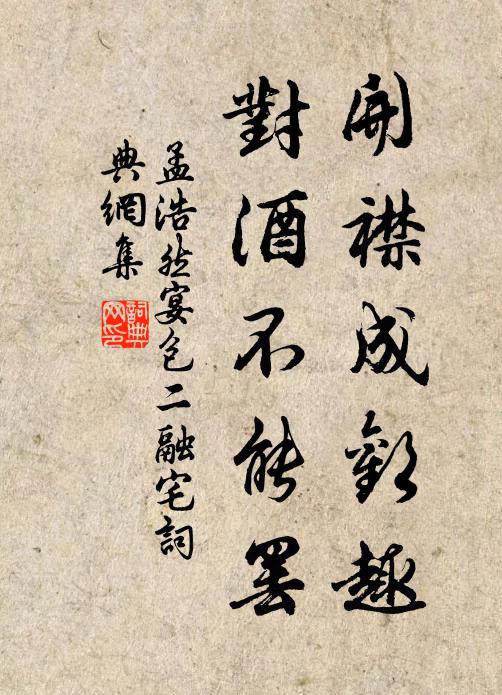 開襟成歡趣
對酒不能罷
孟浩然宴包二融宅詞
典網集
詞典
网印